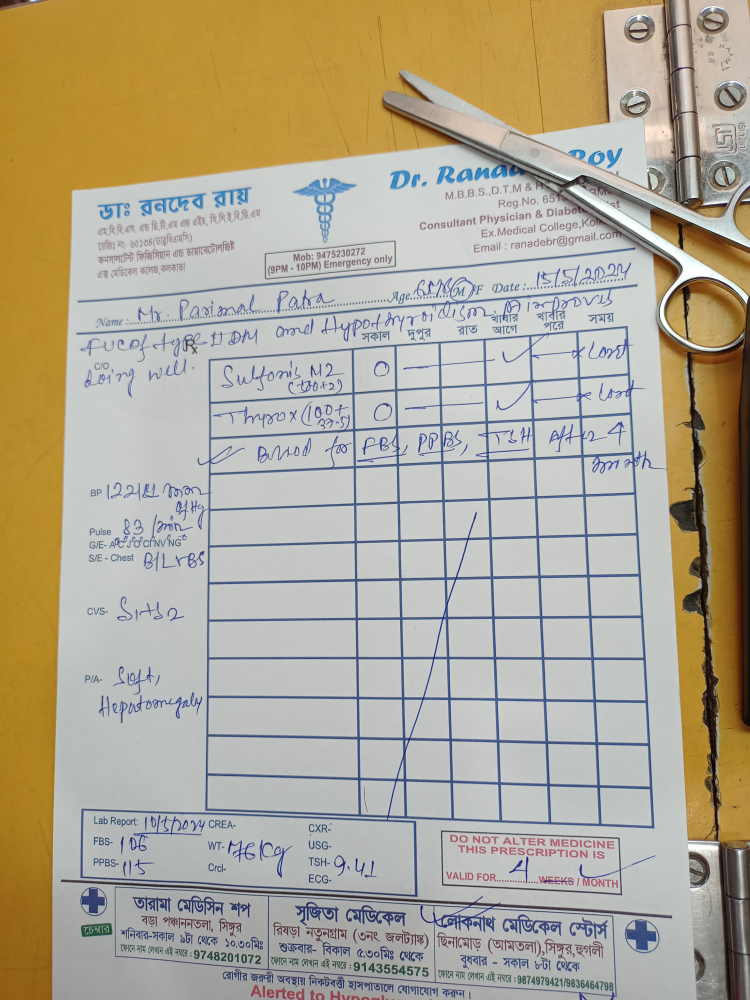 ডাঃ রনদেব রায়
এম.বি.বি.এস, এন্ড ডি.টি.এম এন্ড এইচ, সি.সি.ই.বি.ডি.এম
রেজিঃ নং- ৬৫১৩৪(ডাব্লুবিএমসি)
কনসালটেন্ট ফিজিসিয়ান এন্ড ডায়াবেটোলজিষ্ট
এক্স মেডিকেল কলেজ, কলকাতা
Mob: 9475230272
(9PM - 10PM) Emergency only
Dr. Roy
M.B.B.S.,D.T.M &
Reg.No.
Consultant Physician &
Ex.Medical College,
Email : ranadebr@gmail.com
Name : Mr. Parimal Patra Age M/F Date : 15/5/2024
and Hypothyroidism improves
C/O doing well.
Rx
সকাল দুপুর রাত খাবার আগে খাবার পরে সময়
Sulfonis M2
(500+2) O — — ✓
Thyrox (100+
37.5) O — — ✓
✓ Blood for FBS, PPBS, TSH After 4
month
BP 122/81 mm
of Hg
Pulse 83 /min
G/E-
S/E - Chest B/L VBS
CVS- S1+S2
P/A- Soft,
Hepatomegaly
Lab Report: 10/5/2024 CREA- CXR-
FBS- 106 WT- 76 Kg USG-
PPBS- 115 Crcl- TSH- 9.41
ECG-
DO NOT ALTER MEDICINE
THIS PRESCRIPTION IS
VALID FOR 4 WEEKS / MONTH
চেম্বার
তারামা মেডিসিন শপ
বড়া পঞ্চাননতলা, সিঙ্গুর
শনিবার-সকাল ৯টা থেকে ১০.৩০মিঃ
ফোনে নাম লেখান এই নম্বরে : 9748201072
সৃজিতা মেডিকেল
রিষড়া নতুনগ্রাম (৩নং জলট্যাঙ্ক)
শুক্রবার- বিকাল ৫.৩০মিঃ থেকে
ফোনে নাম লেখান এই নম্বরে : 9143554575
লোকনাথ মেডিকেল স্টোর্স
ছিনামোড় (আমতলা),সিঙ্গুর,হুগলী
বুধবার - সকাল ৮টা থেকে
ফোনে নাম লেখান এই নম্বরে : 9874979421/9836464798
রোগীর জরুরী অবস্থায় নিকটবর্ত্তী হাসপাতালে যোগাযোগ করুন।
Alerted to